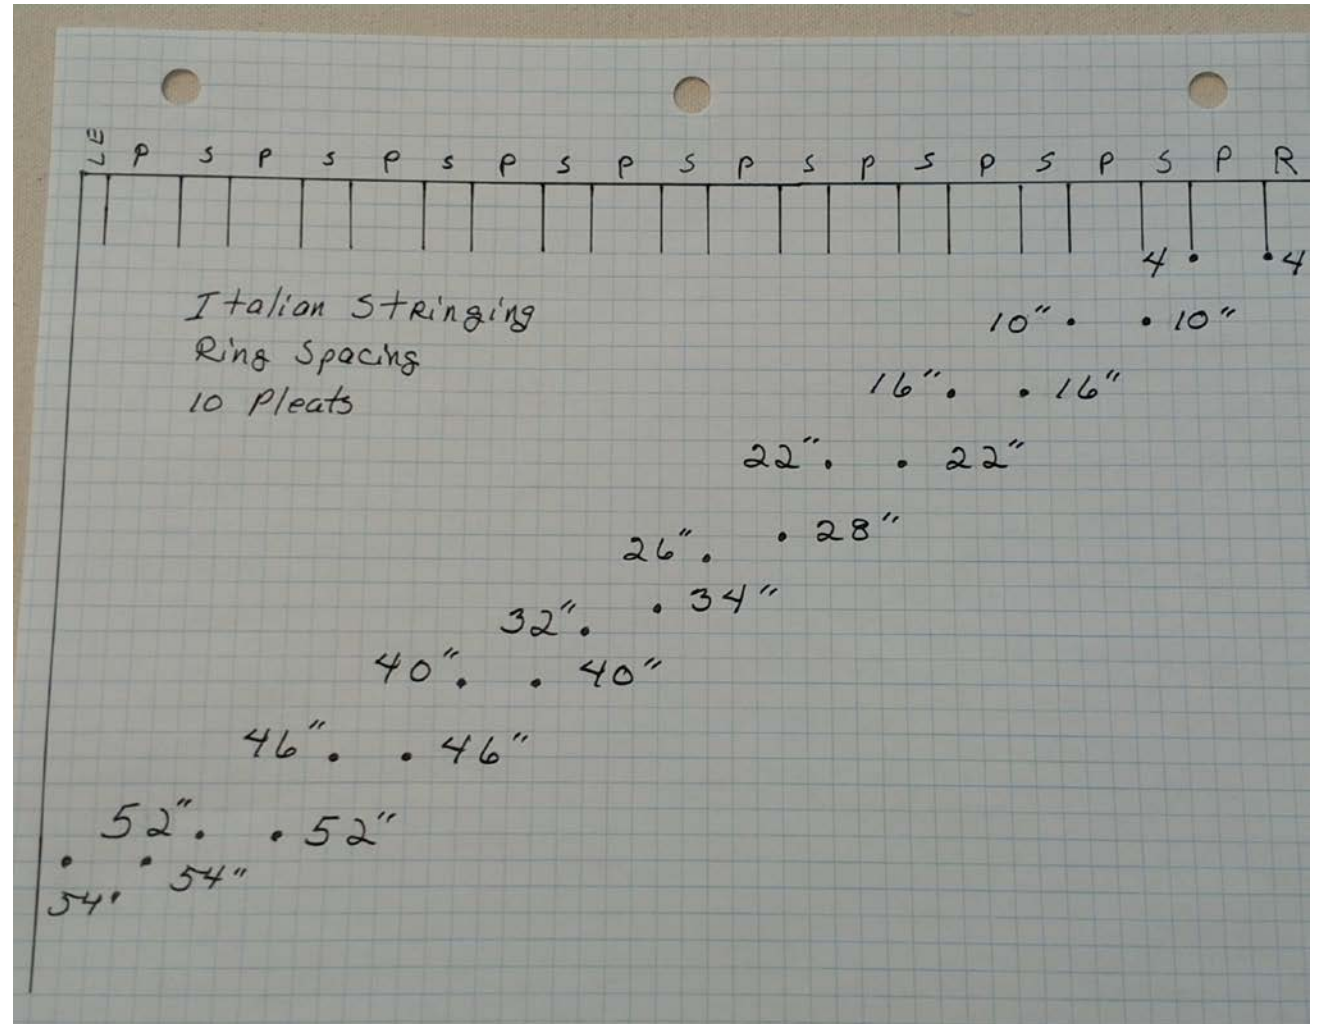 LE P S P S P S P S P S P S P S P S P S P R
4 . . 4
Italian Stringing
10" . . 10"
Ring Spacing
16" . . 16"
10 Pleats
22" . . 22"
26" . . 28"
32" . . 34"
40" . . 40"
46" . . 46"
52" . . 52"
. . 54"
54"